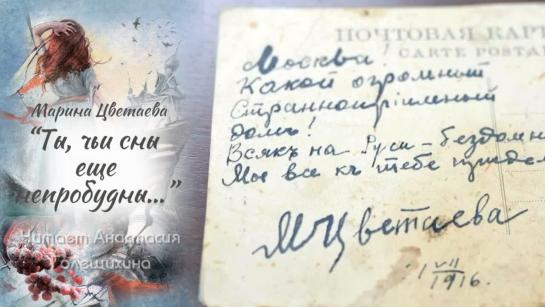 Марина Цветаева
“Ты, чьи сны
еще
непробудны...”
Читает Анастасия
ПОЧТОВАЯ КАР
CARTE POSTA
Москва!
Какой огромный
Страннопріимный
домъ!
Всякъ на Руси – бездомн
Мы все къ тебе придем
МЦветаева
1 VII 1916.